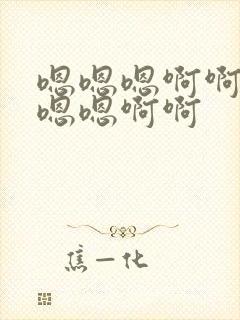 嗯嗯嗯啊啊
嗯嗯啊啊
焦一化